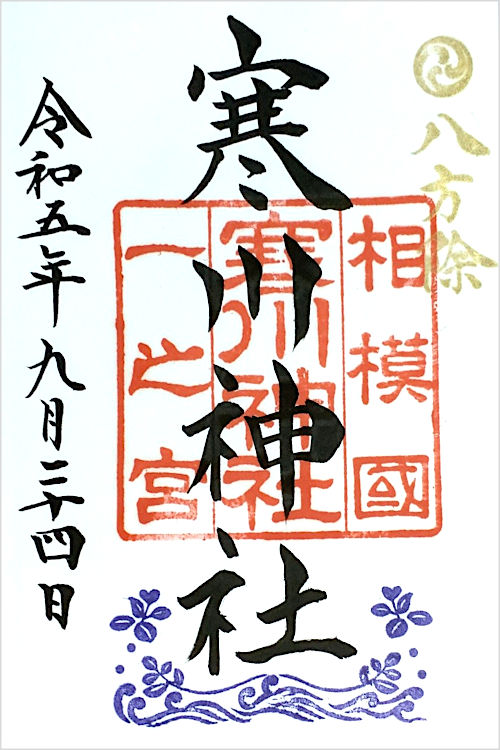 八方除
相模國
寒川神社
一之宮
寒川神社
令和五年九月二十四日